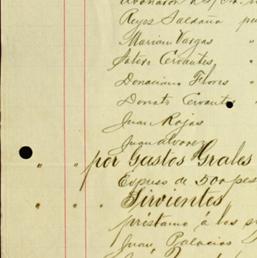 Abonaron á
Reyes Saldaña
Mariano Vargas "
Cervantes "
Donaciano Flores "
Donato Cervantes "
Juan Rojas
Juan Alvarez
" " por Gastos Grales
de 500 pes
" " Sirvientes
préstamo á los
Juan, Palacios